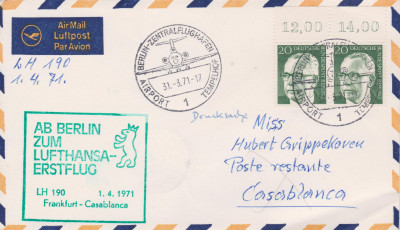 Air Mail
Luftpost
Par Avion
LH 190
1.4.71.
BERLIN-ZENTRALFLUGHAFEN
31.-3.71-17
AIRPORT 1 TEMPELHOF
12,00 14,00
20 20
AIRPORT 1 TEMPELHOF
Drucksache
AB BERLIN
ZUM
LUFTHANSA-
ERSTFLUG
LH 190 1. 4. 1971
Frankfurt - Casablanca
Miss
Hubert Grippekoven
Poste restante
Casablanca